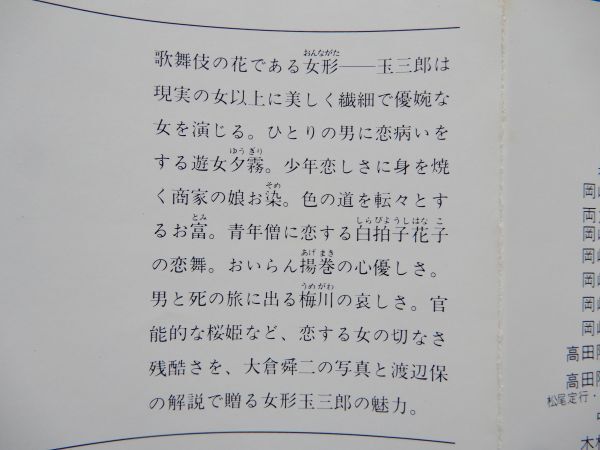 歌舞伎の花である女形――玉三郎は
現実の女以上に美しく繊細で優婉な
女を演じる。ひとりの男に恋病いを
する遊女夕霧。少年恋しさに身を焼
く商家の娘お染。色の道を転々とす
るお富。青年僧に恋する白拍子花子
の恋舞。おいらん揚巻の心優しさ。
男と死の旅に出る梅川の哀しさ。官
能的な桜姫など、恋する女の切なさ
残酷さを、大倉舜二の写真と渡辺保
の解説で贈る女形玉三郎の魅力。
岡
両
岡
岡
岡
岡
岡
高田
高田
松尾定行・
木